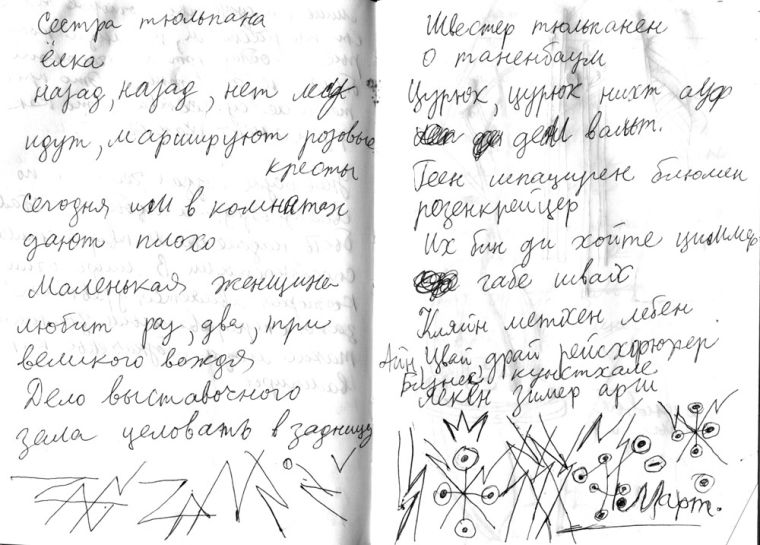 Сестра тюльпана
ёлка
назад, назад, нет
идут, маршируют розовые
кресты
Сегодня им в комнатах
дают плохо
Маленькая женщина
любит раз, два, три
великого вождя
Дело выставочного
зала целовать в задницу
Швестер тюльпанен
О таненбаум
Цурюк, цурюк нихт ауф
ден вальт.
Геен шпацирен блюмен
розенкрейцер
Их бин ди хойте цимммер
габе швах
Кляйн метхен лебен
Айн Цвай драй рейсхфюрер
Бизнес кунстхале
лекен зимер арш
Март.